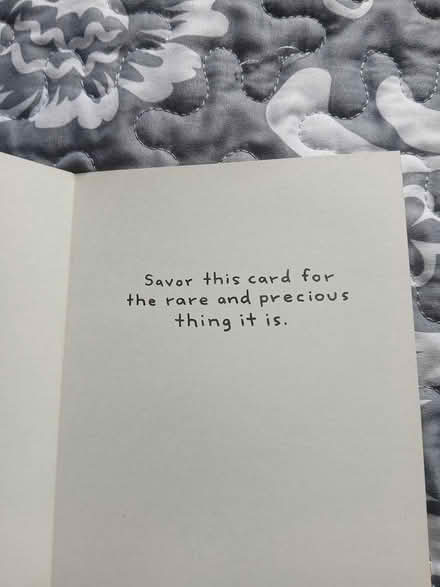 Savor this card for
the rare and precious
thing it is.